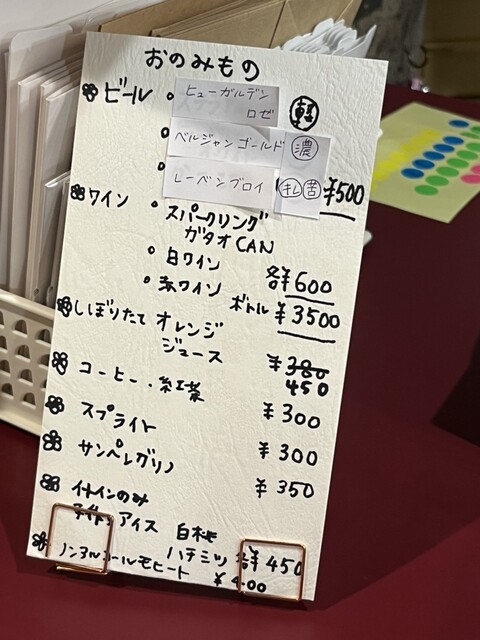 おのみもの
ビール
ヒューガルデン
ロゼ 軽
ベルジャンゴールド 濃
レーベンブロイ キレ 苦 ¥500
ワイン
スパークリング
ガタオCAN
白ワイン 各¥600
赤ワイン ボトル ¥3500
しぼりたて オレンジ
ジュース ¥380
450
コーヒー・紅茶 ¥300
スプライト ¥300
サンペレグリノ ¥350
イートインのみ
手作りアイス 白桃
ハチミツ 各¥450
ノンアルコールモヒート ¥400